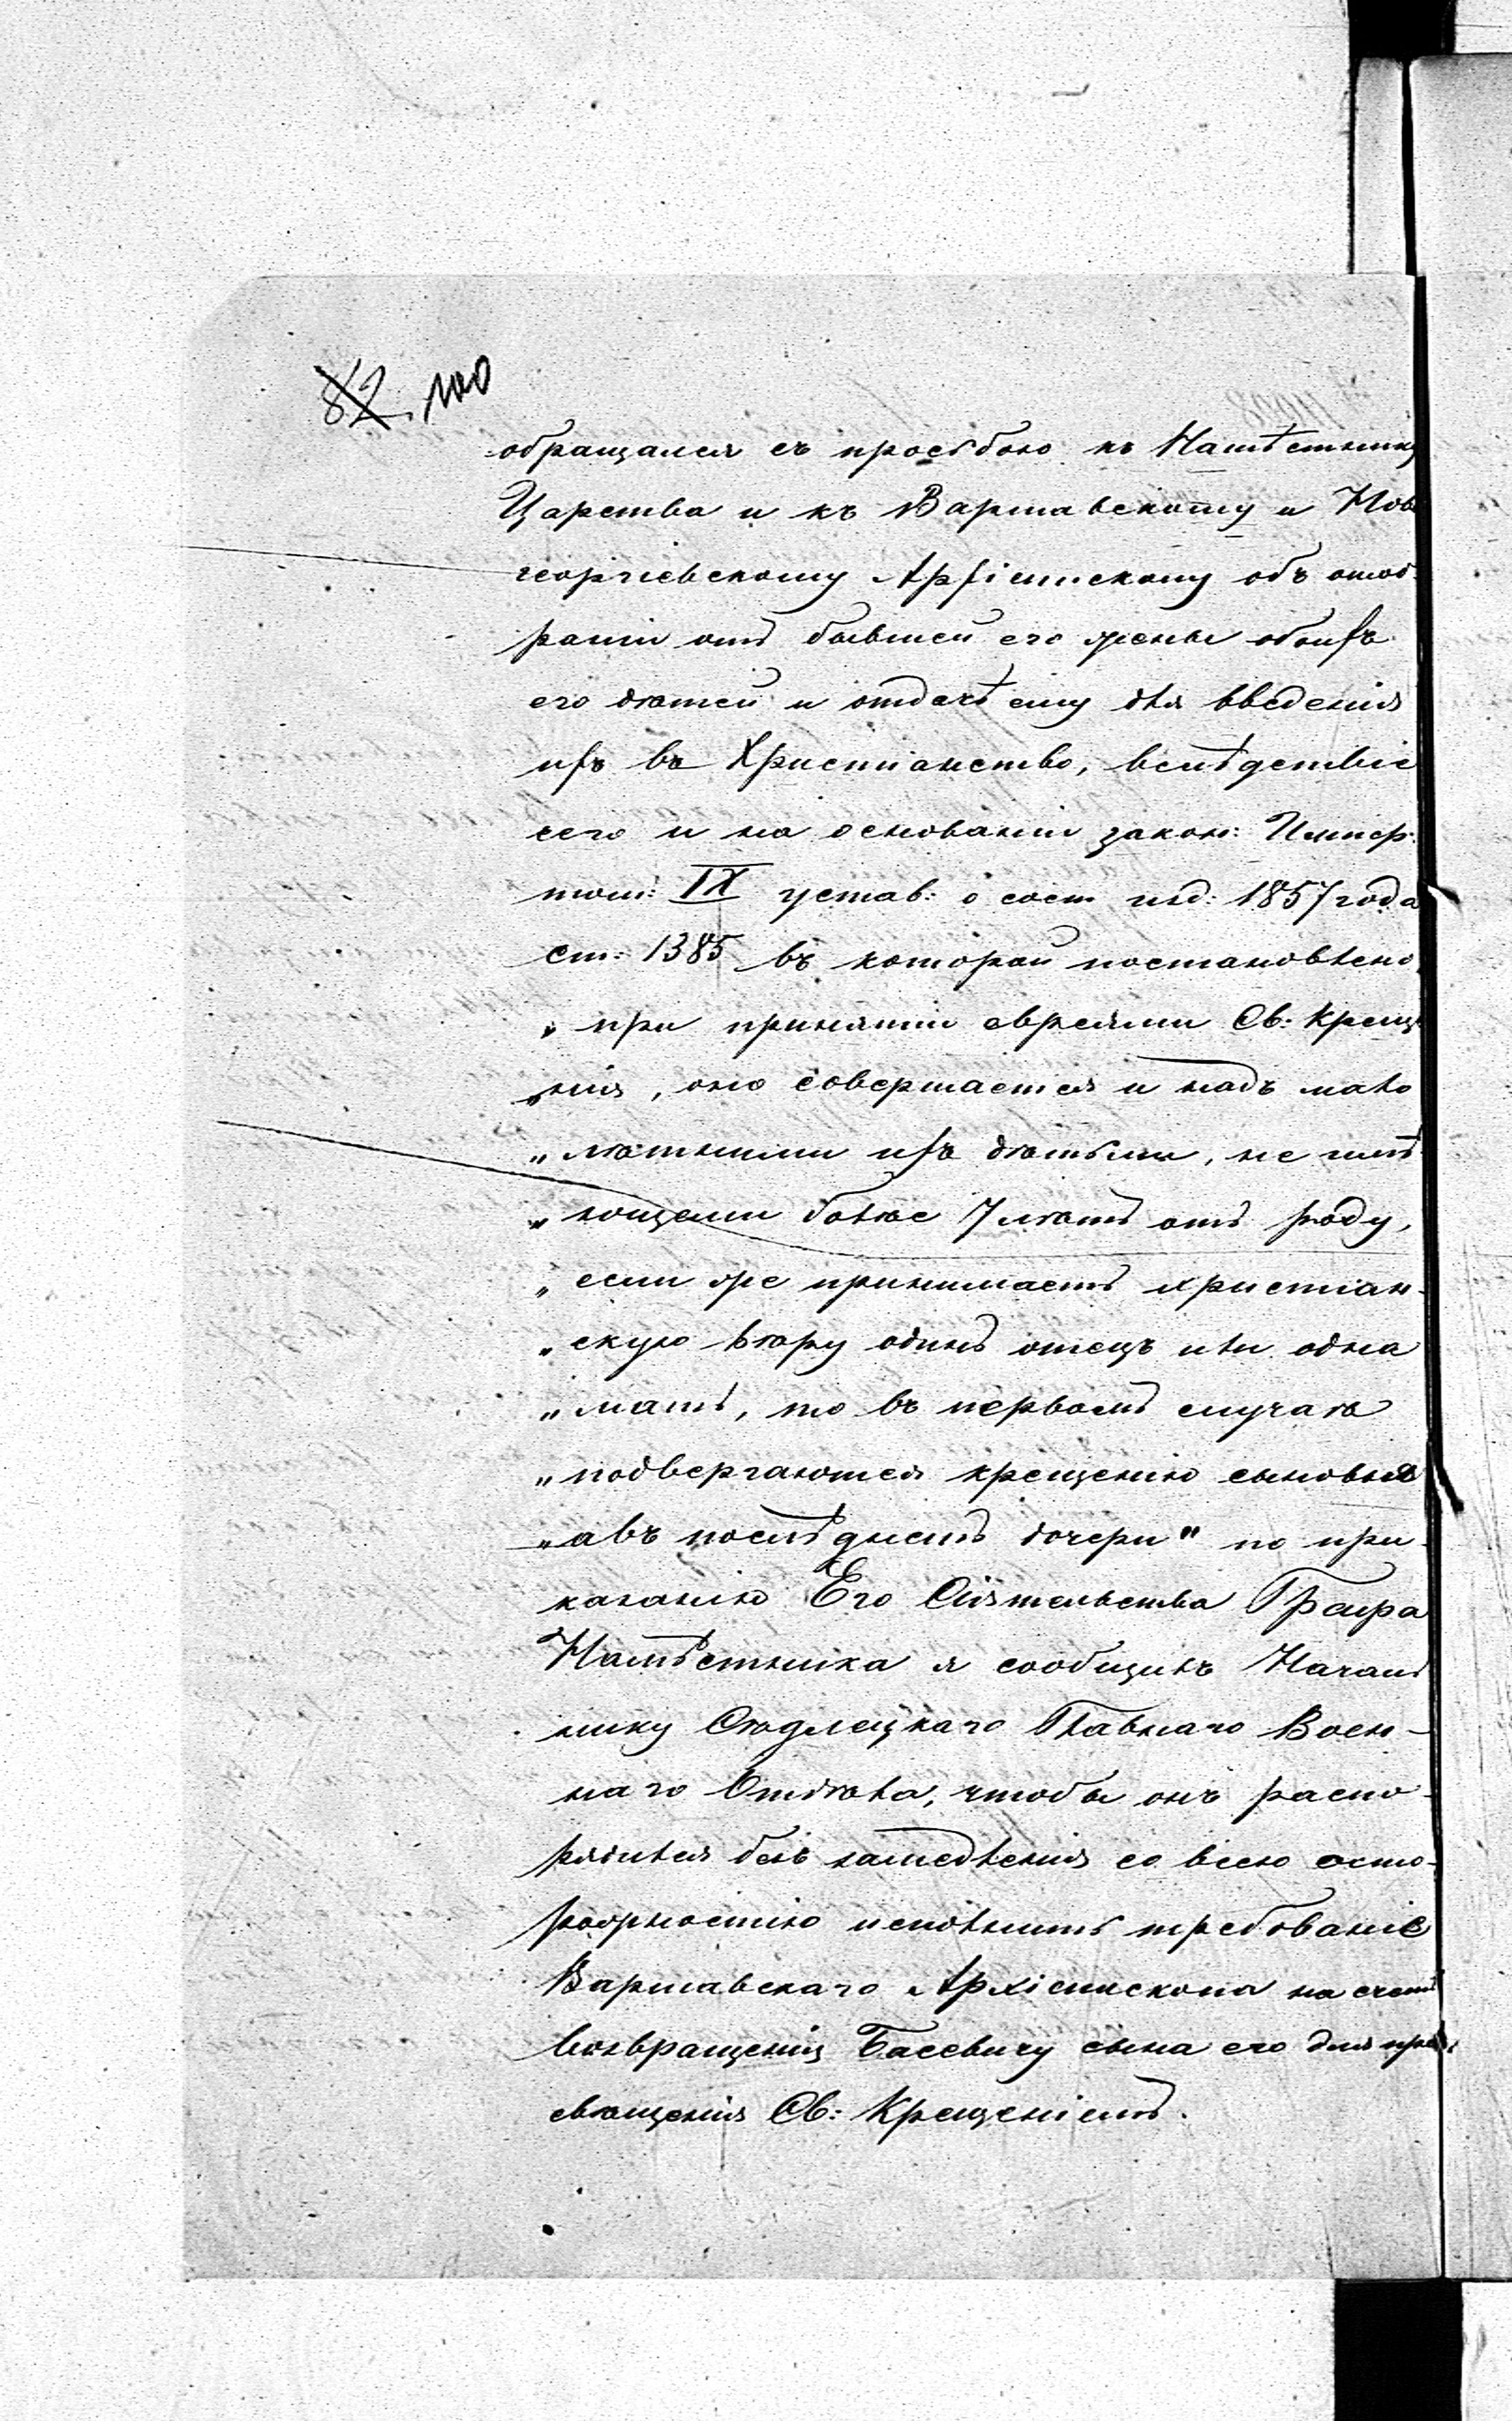 82 100
обращался съ просьбою къ Намѣстнику
Царства и къ Варшавскому и Ново
георгіевскому Архіепископу объ отоб-
раніи отъ бывшей его жены обоихъ
его дѣтей и отдачѣ ему для введенія
ихъ въ Христіанство, вслѣдствіе
сего и на основаніи закон: Импер:
том: IX устав: о сост изд: 1857 года
ст: 1385 въ которой постановлено,
„при принятіи евреями Св: Креще
„нія, оно совершается и надъ мало
„лѣтними ихъ дѣтьми, не имѣ
„ющими болѣе 7 лѣтъ отъ роду,
„если же принимаетъ христіан-
„скую вѣру одинъ отецъ или одна
„мать, то въ первомъ случаѣ
„подвергаются крещенію сыновья
„а въ послѣднемъ дочери" по при-
казанію Его Сіятельства Графа
Намѣстника я сообщилъ Началь
нику Сѣдлецкаго Главнаго Воен-
наго Отдѣла, чтобы онъ распо-
рядился безъ замедленія со всею осто-
рожностію исполнить требованіе
Варшавскаго Архіепископа на счетъ
возвращенія Басевичу сына его для про-
свѣщенія Св: Крещеніемъ.